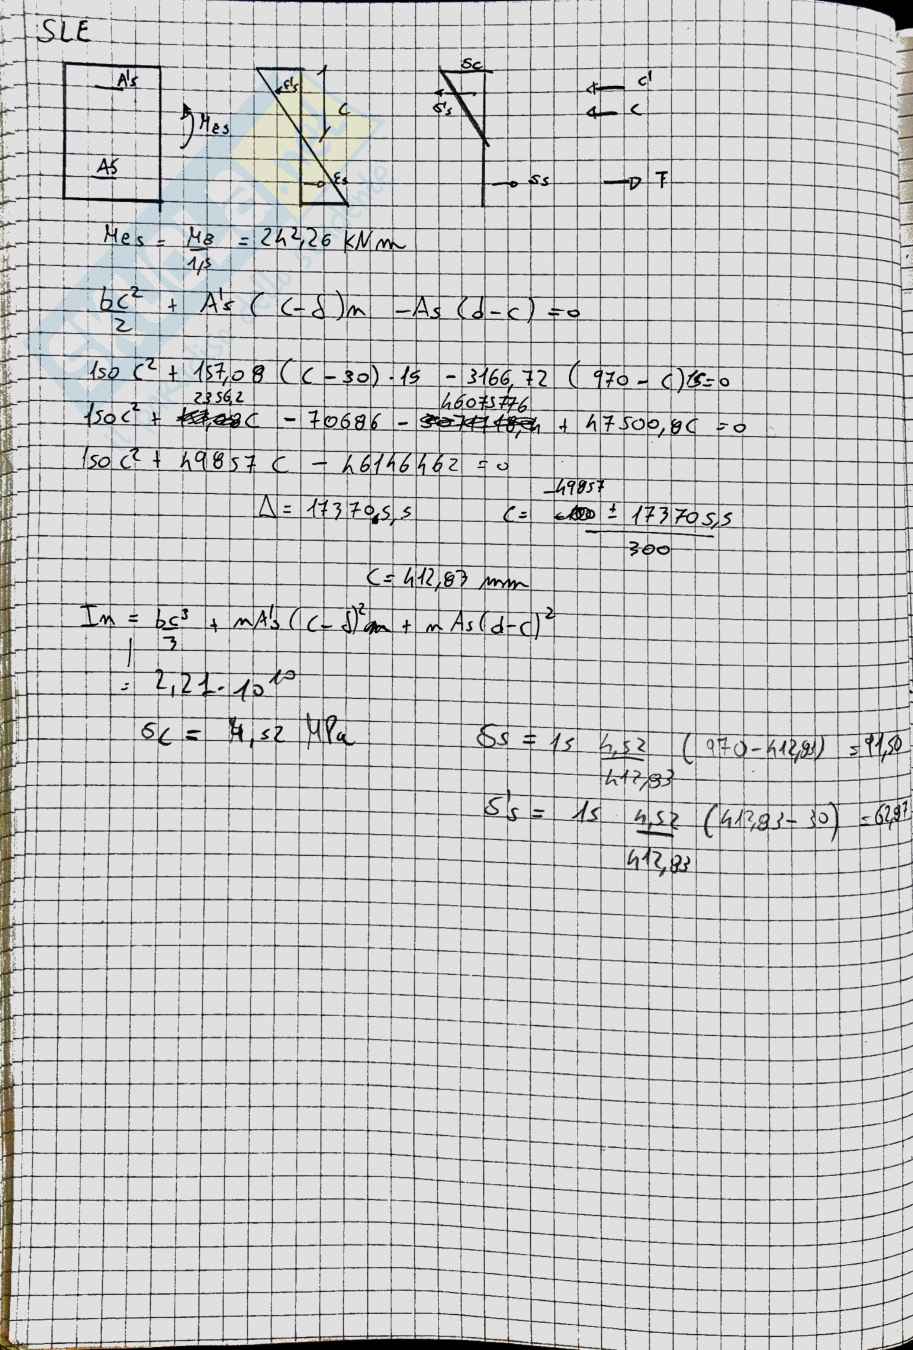 SLE
A's
ε's
C
Mes
As
εs
σc
σ's
σs
C'
C
T
Mes = MB/1,5 = 242,26 KNm
bc²/2 + A's (c-δ)n - As (d-c) = 0
150 c² + 157,08 (c-30)·15 - 3166,72 (970-c)15=0
150c² + 2356,2 c - 70686 - 46075776 + 47500,8c = 0
150c² + 49857 c - 46146462 = 0
Δ = 173705,5
c = -49857 ± 173705,5 / 300
c = 412,83 mm
In = bc³/3 + nA's (c-δ)² + n As(d-c)²
= 2,21·10¹⁰
σc = 4,52 MPa
σs = 15 4,52/412,83 (970-412,83) = 91,50
σ's = 15 4,52/412,83 (412,83-30) = 62,87